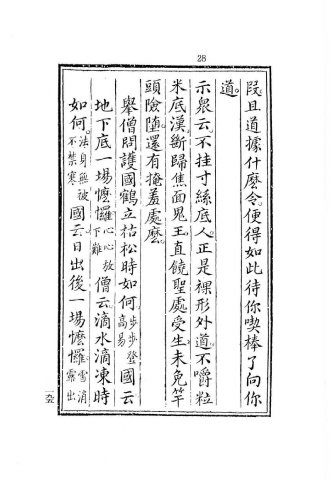 28
段且道據什麼令便得如此待你喫棒了向你
道。
示衆云。不挂寸絲底人。正是裸形外道。不嚼粒
米底漢。斷歸焦面鬼王。直饒聖處受生。未免竿
頭險墮。還有掩羞處麼。
舉僧問護國。鶴立枯松時如何。步步登高易國云
地下底一場懡㦬。心心放下難僧云。滴水滴凍時
如何。法身無被不禁寒國云。日出後一場懡㦬。雪消露出